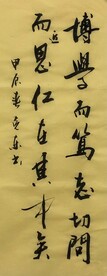 博學而篤志切問
而近思仁在其中矣
甲辰春